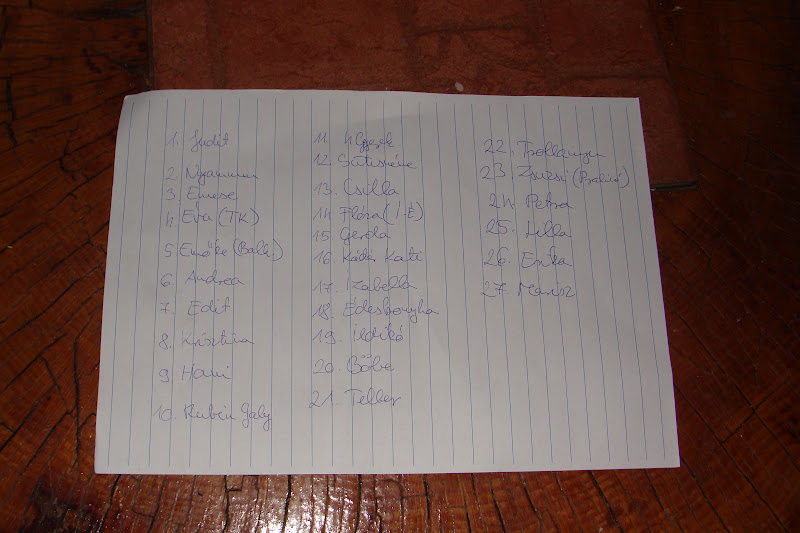 1. Judit
2. Nyamunu
3. Emese
4. Éva (TK)
5. Emőke (Bali.)
6. Andrea
7. Edit
8. Krisztina
9. Hami
10. Rubin Galy
11. 4 Gyerek
12. Sütisnéne
13. Csilla
14. Flóra (I-É)
15. Gerda
16. Kádár Kati
17. Izabella
18. Édeskonyha
19. Ildikó
20. Böbe
21. Teller
22. Trollanyu
23. Zsuzsi
24. Petra
25. Lilla
26. Erika
27. Marisz